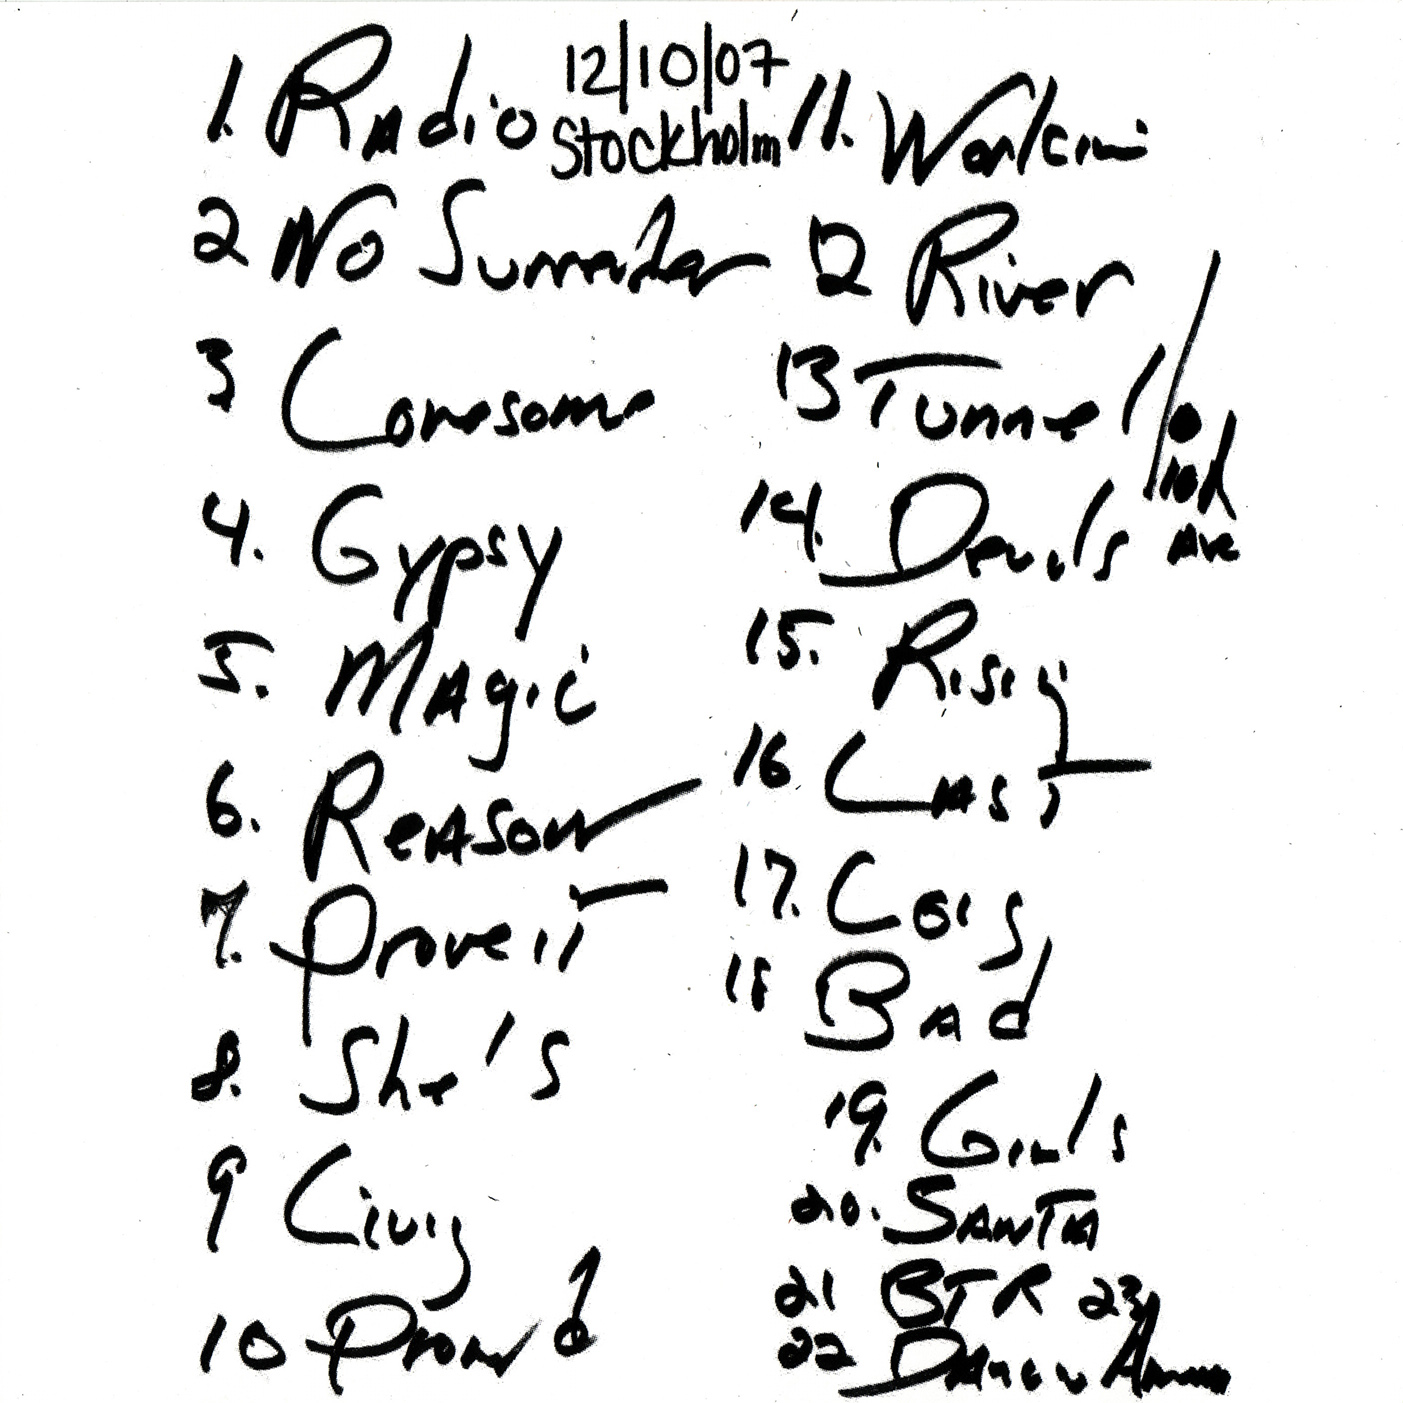 12/10/07
Stockholm
1. Radio
2 No Surrender
3 Lonesome
4. Gypsy
5. Magic
6. Reason
7. Prove it
8. She's
9 Livig
10 Promd
11. Workin
12 River
13 Tunnel / or 10th Ave
14. Devils
15. Risig
16 LAST
17. Loig
18 BAd
19. Girls
20. SANTA
21 BTR
22 Dancin
23